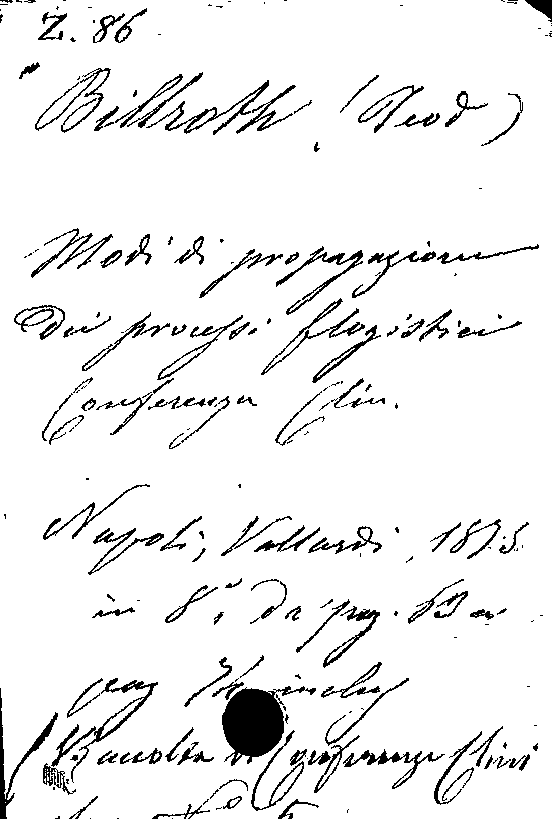 Z. 86
Billroth, (Teod)
Modi di propagazione
dei processi flogistici
Conferenza Clin.
Napoli, Vallardi, 1875
in 8°, da pag.
pag
(Raccolta di Conferenze Clini
N° 5